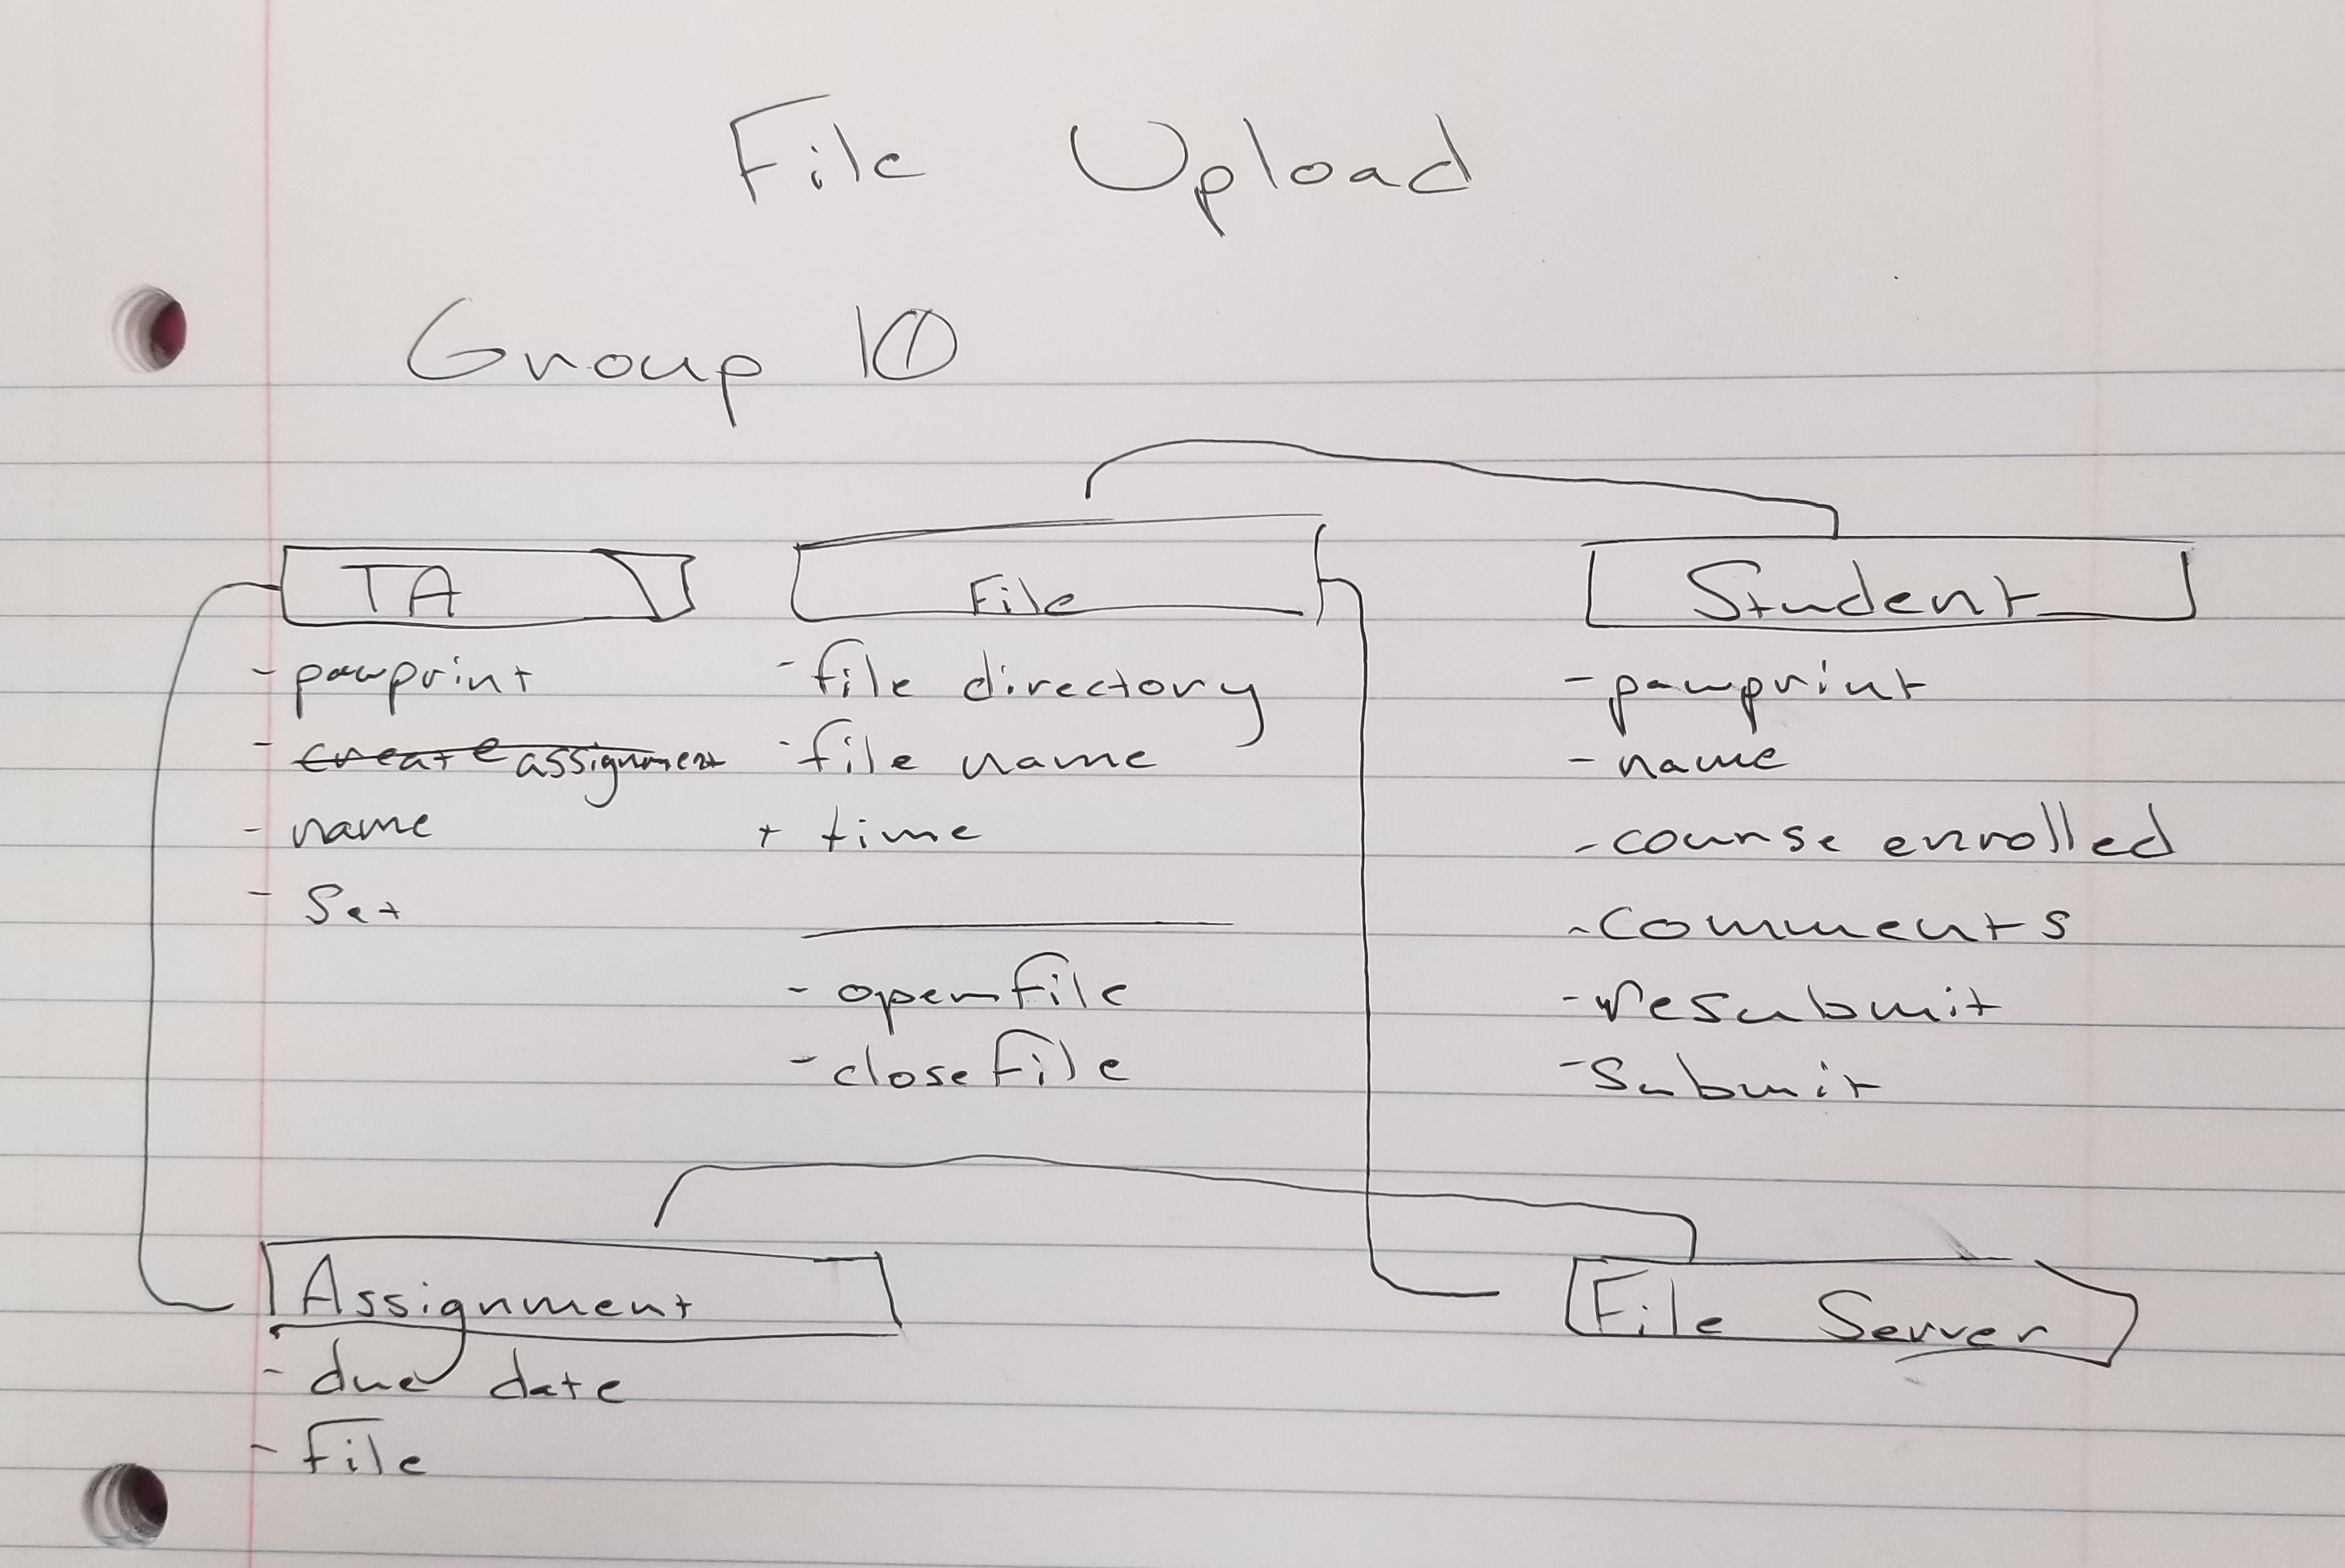 File Upload
Group 10
TA
- pawprint
- create assignment
- name
- Set
File
- file directory
- file name
+ time
- openFile
- closeFile
Student
- pawprint
- name
- course enrolled
- comments
- resubmit
- Submit
Assignment
- due date
- File
File Server